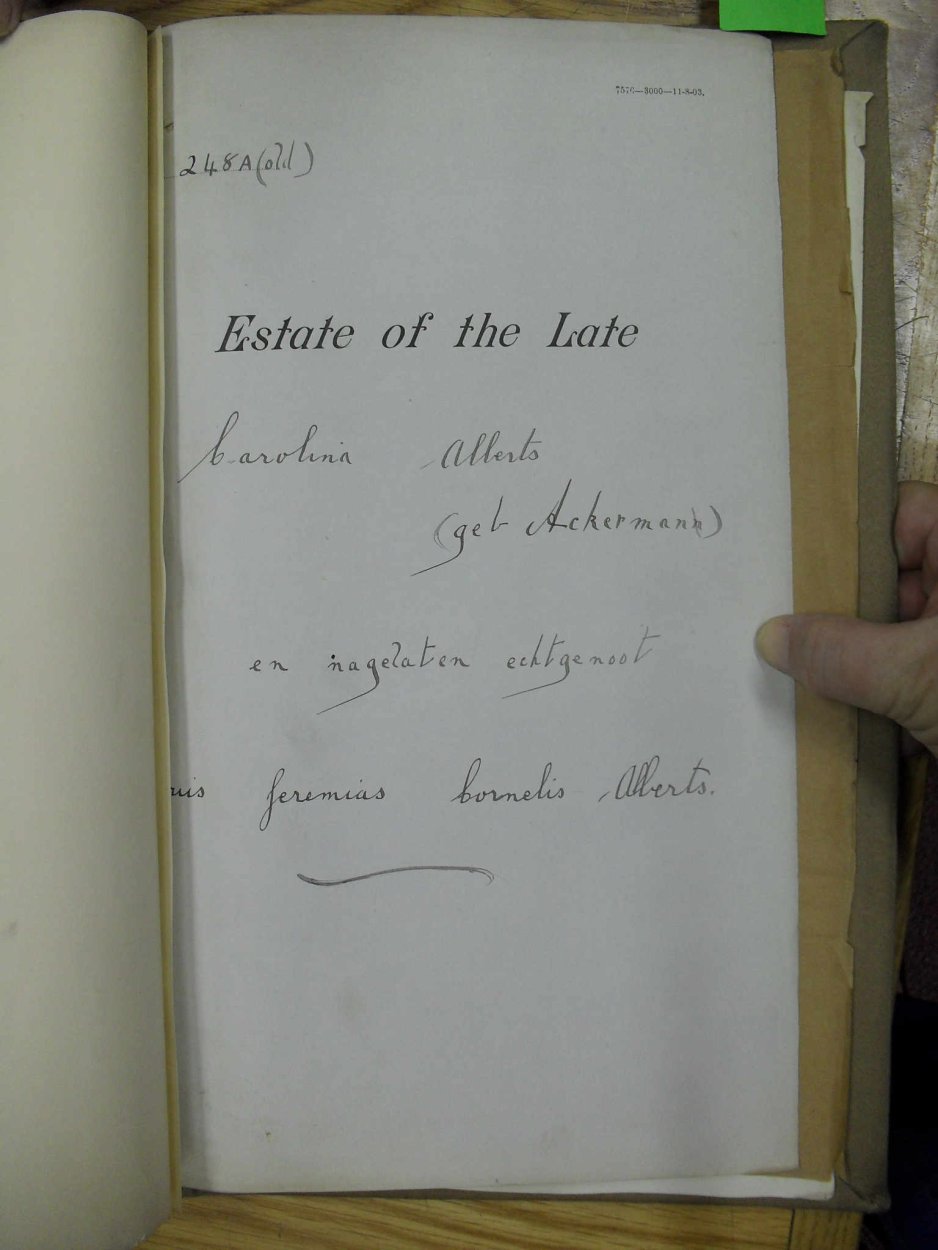 7576—3000—11-8-03.
248A (old)
Estate of the Late
Carolina Alberts
(geb Ackermann)
en nagelaten echtgenoot
Jeremias Cornelis Alberts.